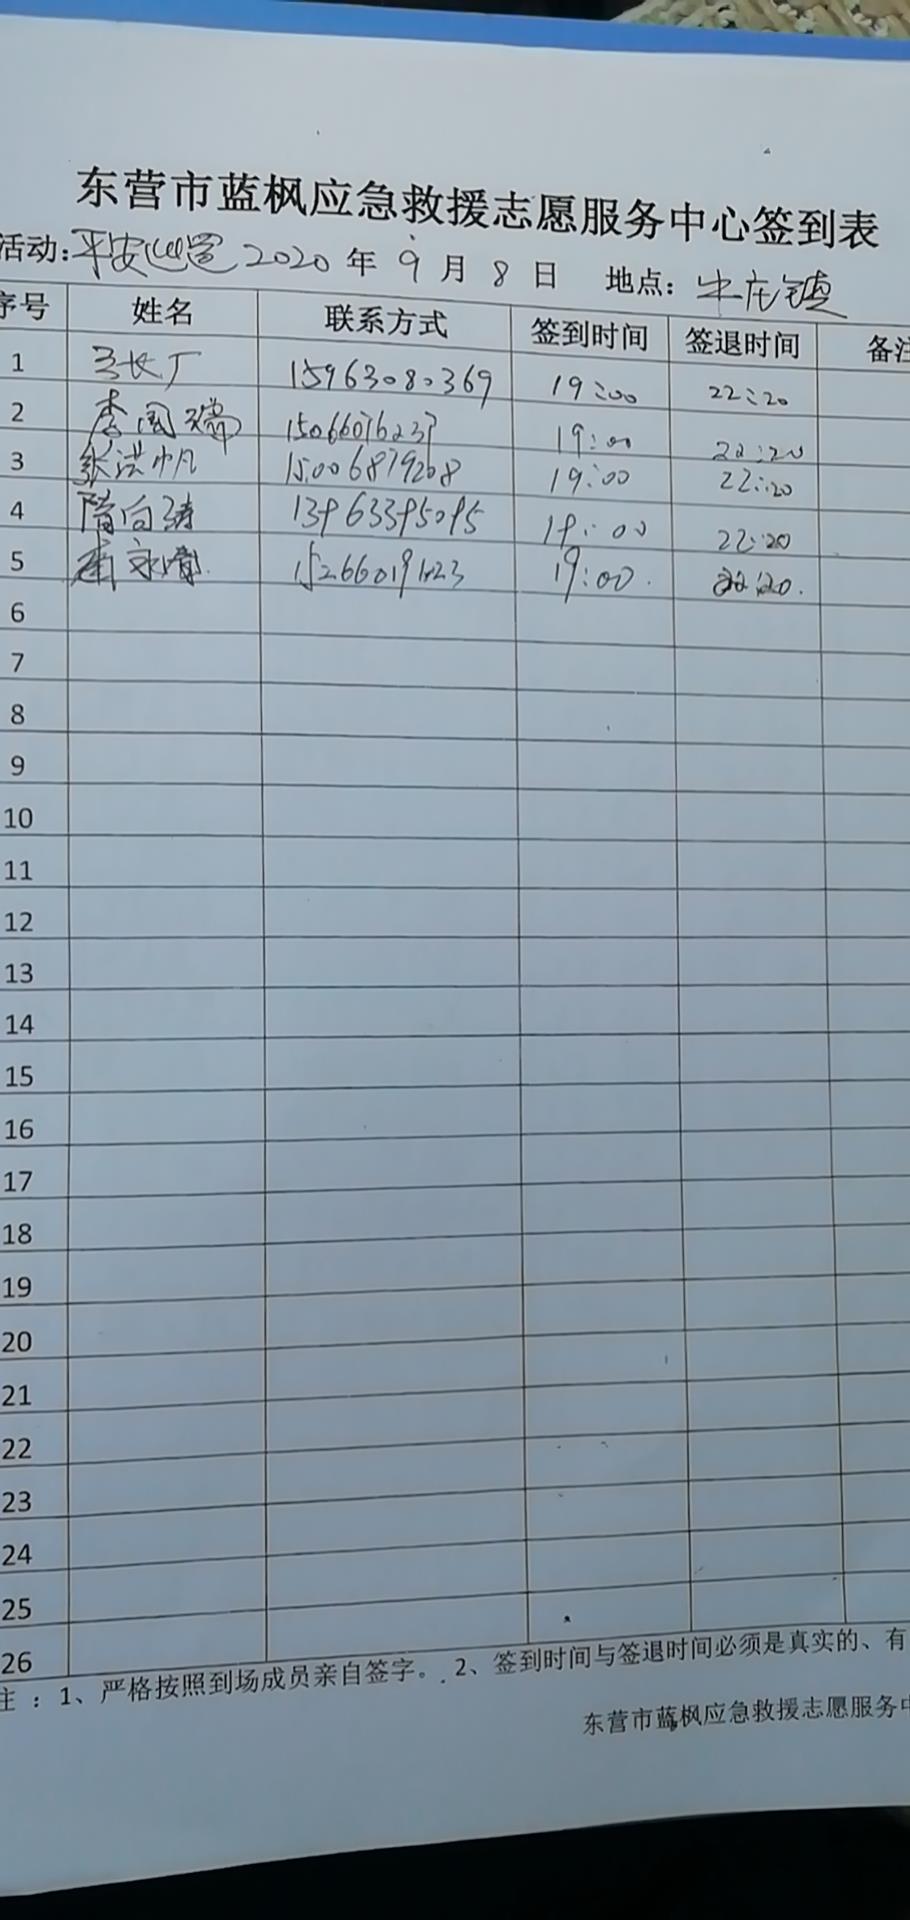 东营市蓝枫应急救援志愿服务中心签到表
活动: 平安 2020 年 9 月 8 日 地点: 牛庄镇
序号 姓名 联系方式 签到时间 签退时间 备注
1 长厂 15963080369 19:00 22:20
2 李国瑞 15066076237 19:00 22:20
3 张洪帆 15006879208 19:00 22:20
4 隋向涛 13963395095 19:00 22:20
5 19:00. 22:20.
6
7
8
9
10
11
12
13
14
15
16
17
18
19
20
21
22
23
24
25
26
注：1、严格按照到场成员亲自签字。2、签到时间与签退时间必须是真实的、有
东营市蓝枫应急救援志愿服务中